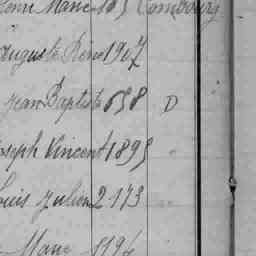 Henri Marie 189 Combourg
Auguste René 1907
Jean Baptiste 658 D
Joseph Vincent 1895 "
Louis Julien 2173
Marie 1194